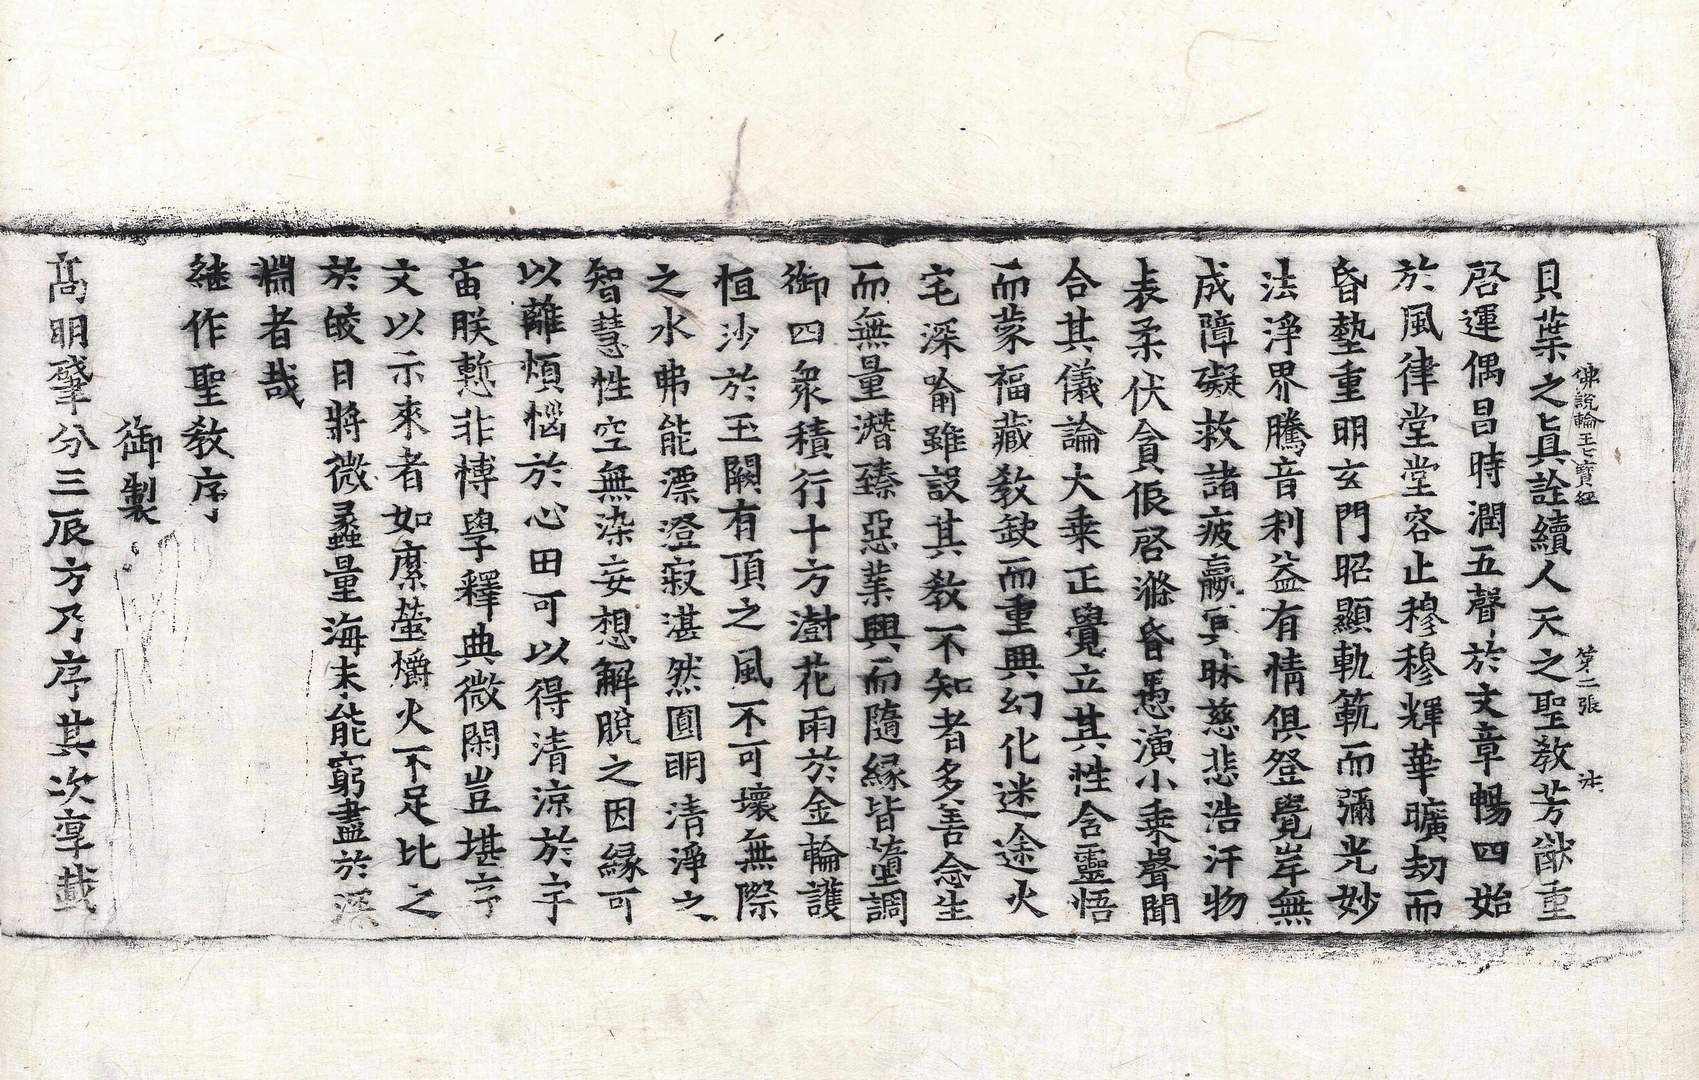 佛說輪王七寶經　第二張
貝葉之眞詮續人天之聖教芳猷重
啓運偶昌時潤五聲於文章暢四始
於風律堂堂容止穆穆輝華曠劫而
昏墊重明玄門昭顯軌範而彌光妙
法淨界騰音利益有情俱登覺岸無
成障礙救諸疲羸冥昧慈悲浩汗物
表柔伏貪佷啓滌昏愚演小乘聲聞
合其儀論大乘正覺立其性含靈悟
而蒙福藏教缺而重興幻化迷途火
宅深喻雖設其教不知者多善念生
而無量潛臻惡業興而隨緣皆墮調
御四衆積行十方澍花雨於金輪護
恒沙於玉闕有頂之風不可壞無際
之水弗能漂澄寂湛然圓明清淨之
智慧性空無染妄想解脫之因緣可
以離煩惱於心田可以得清涼於宇
宙朕慙非博學釋典微閑豈堪序
文以示來者如縻螢爝火不足比之
於皎日將微蠡量海未能窮盡於深
淵者哉
継作聖教序
御製
高明肇分三辰方乃序其次序載